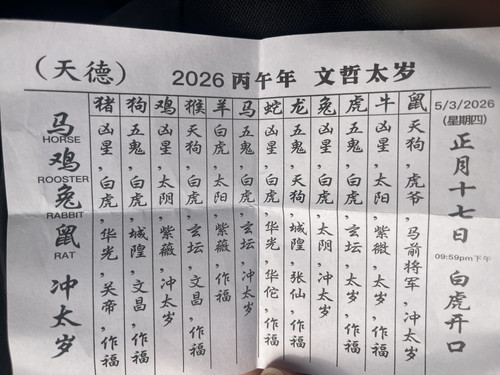 （天德） 2026 丙午年 文哲太岁
5/3/2026
(星期四)
正月十七日
09:59pm下午
白虎开口
鼠
天狗，虎爷，马前将军，冲太岁
牛
凶星，太阳，紫微，太岁，作福
虎
五鬼，白虎，玄坛，太岁，作福
兔
凶星，白虎，太阴，冲太岁
龙
五鬼，天狗，城隍，张仙，作福
蛇
凶星，白虎，华光，华佗，作福
马
五鬼，白虎，玄坛，冲太岁
羊
白虎，太阳，紫薇，作福
猴
天狗，白虎，玄坛，文昌，作福
鸡
凶星，太阴，紫薇，冲太岁
狗
五鬼，白虎，城隍，文昌，作福
猪
凶星，白虎，华光，关帝，作福
马
HORSE
鸡
ROOSTER
兔
RABBIT
鼠
RAT
冲太岁